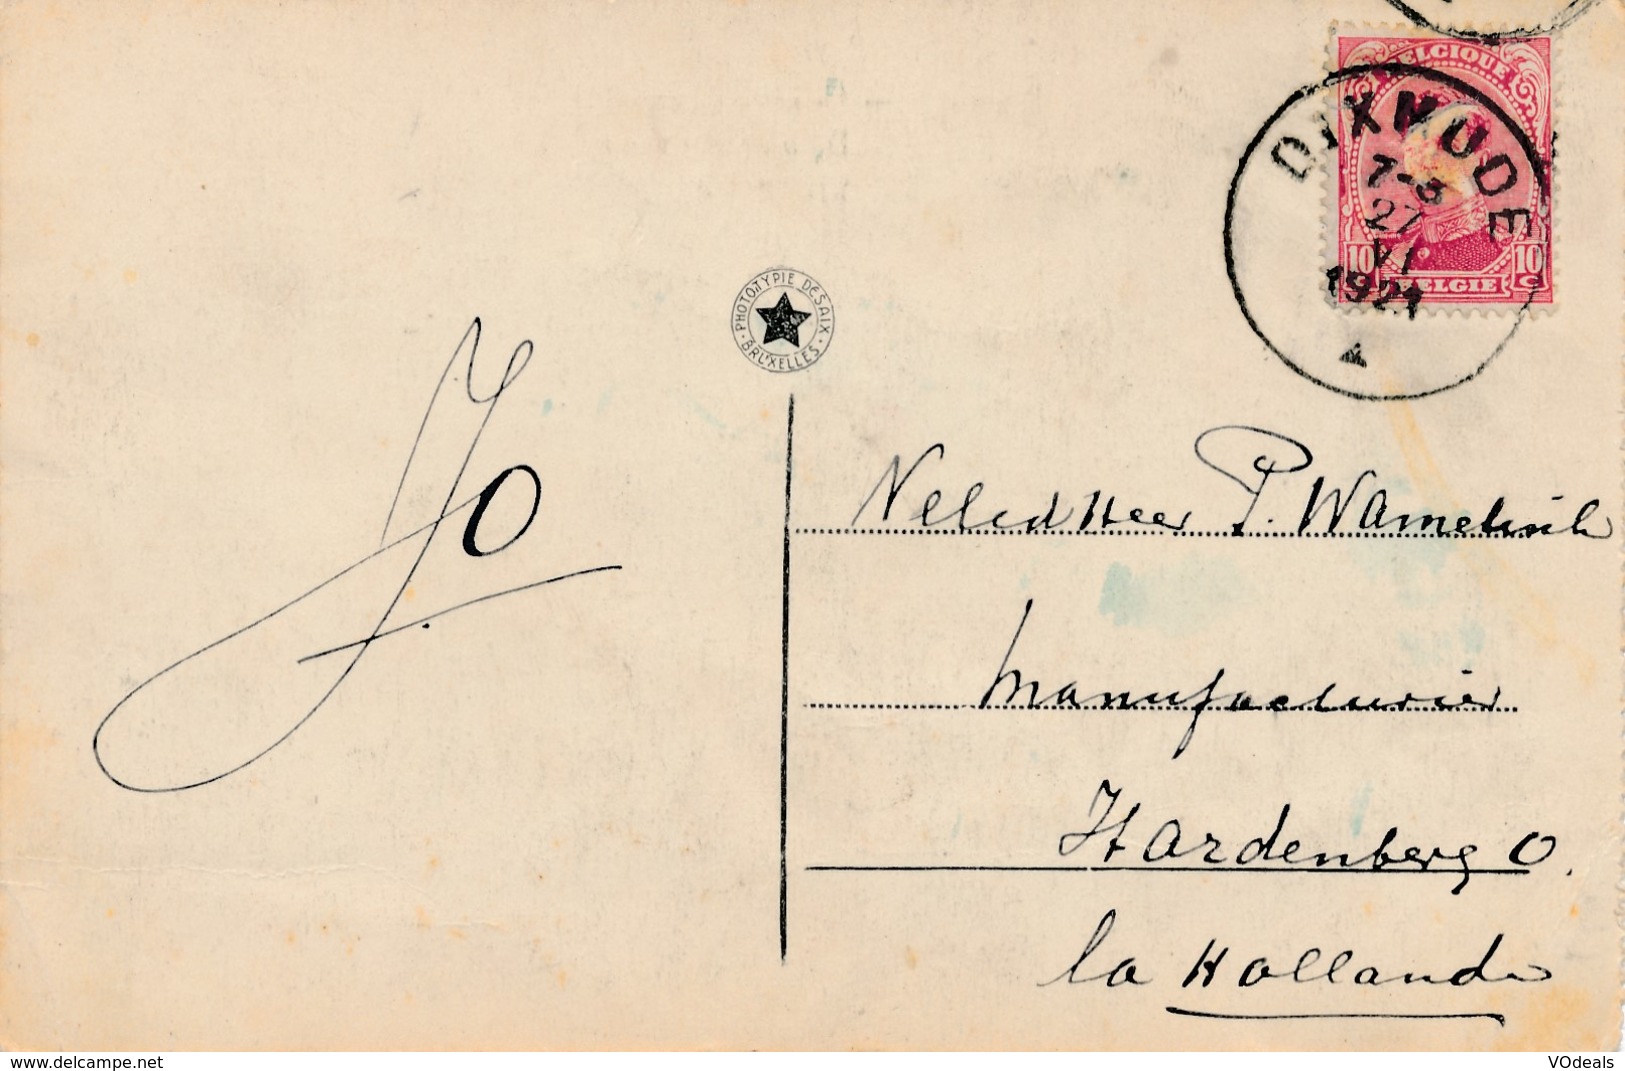 BELGIQUE
DIXMUDE
7-8
27
VI
1921
10 10
C C
BELGIE
PHOTOTYPIE DÉSAIX
BRUXELLES
Jo
Weled Heer P. Wamelink
Manufacturier
Hardenberg O.
la Hollande
www.delcampe.net
VOdeals